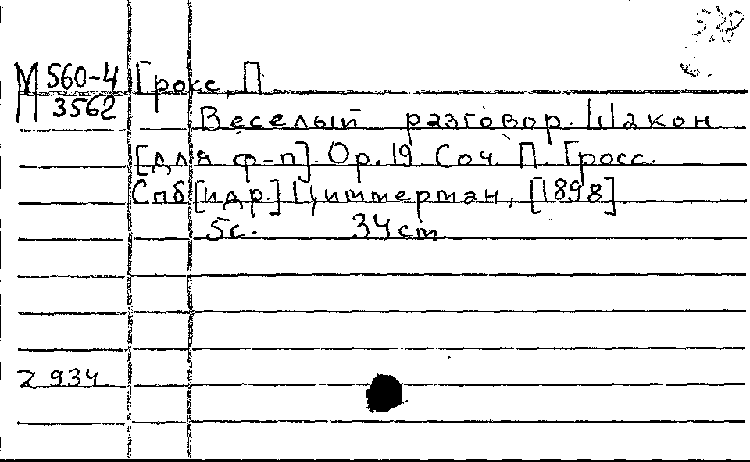 М 560-4 Гросс, П.
3562
Веселый разговор. Шакон
[для ф-п]. Ор. 19. Соч. П. Гросс.
Спб [и др.] Циммерман, [1898].
5с. 34cm
Z 934